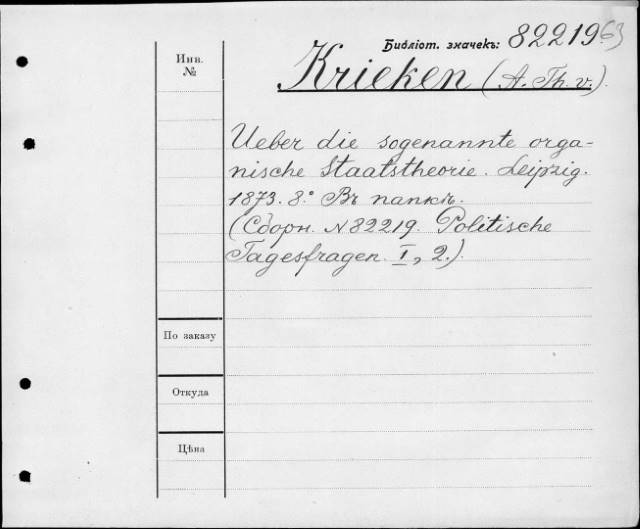 Библіот. значекъ: 82219 63
Инв.
№
Krieken (A. Th. v.)
Ueber die sogenannte orga-
nische Staatstheorie. Leipzig.
1873. 8.° Въ папкѣ.
(Сборн. N 82219. Politische
Tagesfragen. I, 2.)
По заказу
Откуда
Цѣна